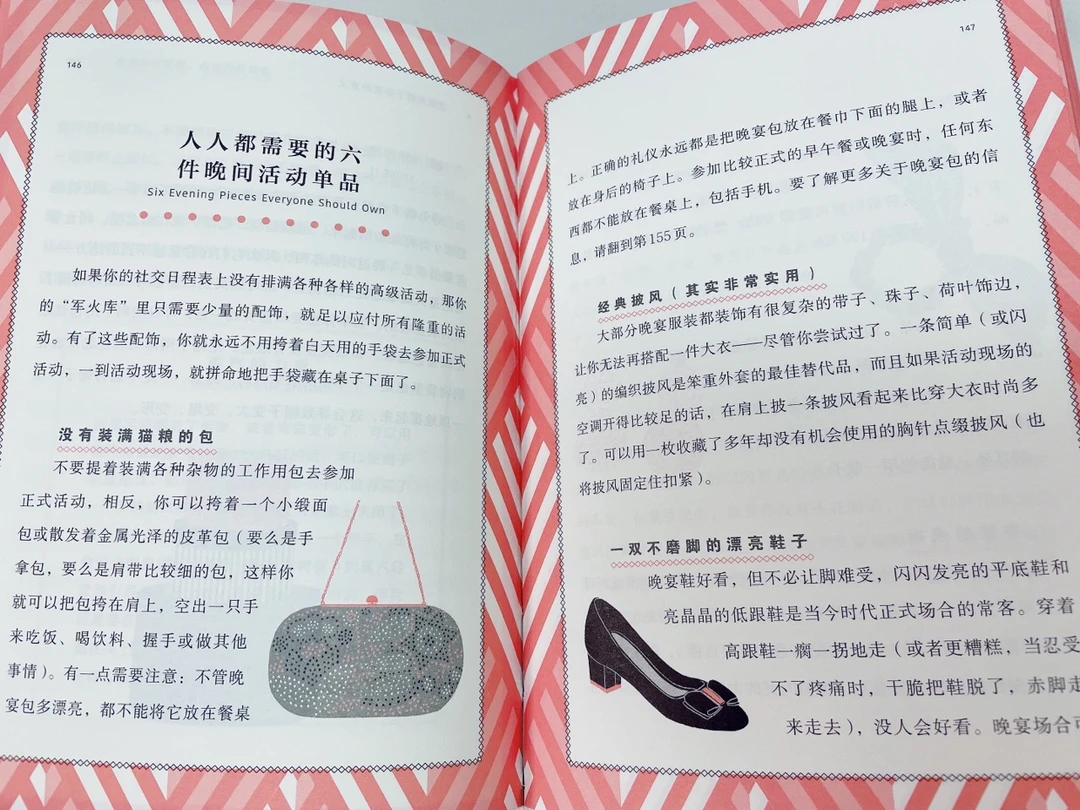 146
人人都需要的六
件晚间活动单品
Six Evening Pieces Everyone Should Own
如果你的社交日程表上没有排满各种各样的高级活动，那你
的“军火库”里只需要少量的配饰，就足以应付所有隆重的活
动。有了这些配饰，你就永远不用挎着白天用的手袋去参加正式
活动，一到活动现场，就拼命地把手袋藏在桌子下面了。
没有装满猫粮的包
不要提着装满各种杂物的工作用包去参加
正式活动，相反，你可以挎着一个小缎面
包或散发着金属光泽的皮革包（要么是手
拿包，要么是肩带比较细的包，这样你
就可以把包挎在肩上，空出一只手
来吃饭、喝饮料、握手或做其他
事情）。有一点需要注意：不管晚
宴包多漂亮，都不能将它放在餐桌
147
上。正确的礼仪永远都是把晚宴包放在餐巾下面的腿上，或者
放在身后的椅子上。参加比较正式的早午餐或晚宴时，任何东
西都不能放在餐桌上，包括手机。要了解更多关于晚宴包的信
息，请翻到第155页。
经典披风（其实非常实用）
大部分晚宴服装都装饰有很复杂的带子、珠子、荷叶饰边，
让你无法再搭配一件大衣——尽管你尝试过了。一条简单（或闪
亮）的编织披风是笨重外套的最佳替代品，而且如果活动现场的
空调开得比较足的话，在肩上披一条披风看起来比穿大衣时尚多
了。可以用一枚收藏了多年却没有机会使用的胸针点缀披风（也
将披风固定住扣紧）。
一双不磨脚的漂亮鞋子
晚宴鞋好看，但不必让脚难受，闪闪发亮的平底鞋和
亮晶晶的低跟鞋是当今时代正式场合的常客。穿着
高跟鞋一瘸一拐地走（或者更糟糕，当忍受
不了疼痛时，干脆把鞋脱了，赤脚走
来走去），没人会好看。晚宴场合可